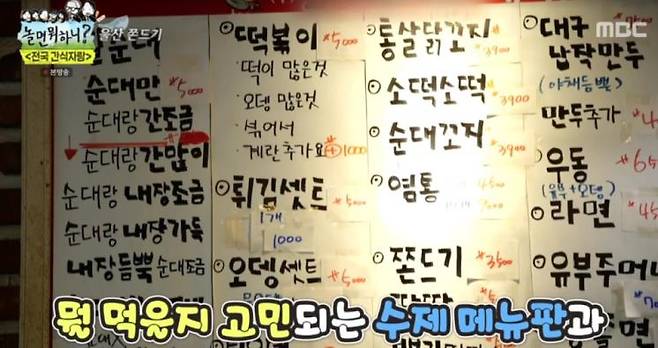 놀면 뭐하니?
울산 쫀드기
<전국 간식자랑>
본방송
MBC
순대만 *5000
순대랑 간조금
순대랑 간많이
순대랑 내장조금
순대랑 내장가득
내장듬뿍 순대조금
떡볶이 *5000
떡이 많은것
오뎅 많은것
섞어서
계란추가요 +1000
튀김셋트 *5000
1개
1000
오뎅셋트 *5000
통살닭꼬지 *3900
소떡소떡 *3900
순대꼬지 *3900
염통 4500
쫀드기 *3500
대구
납작만두
(야채듬뿍)
만두추가
우동 *65
(유부+오뎅)
라면 *45
유부주머니
뭘 먹을지 고민되는 수제 메뉴판과